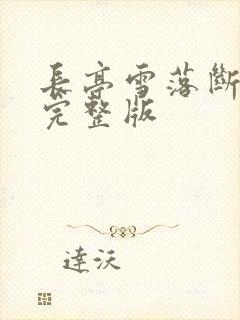 長亭雪落斷
完整版
達沃